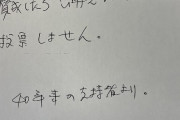 賛成したら
投票しません。
40年来の支持者より。